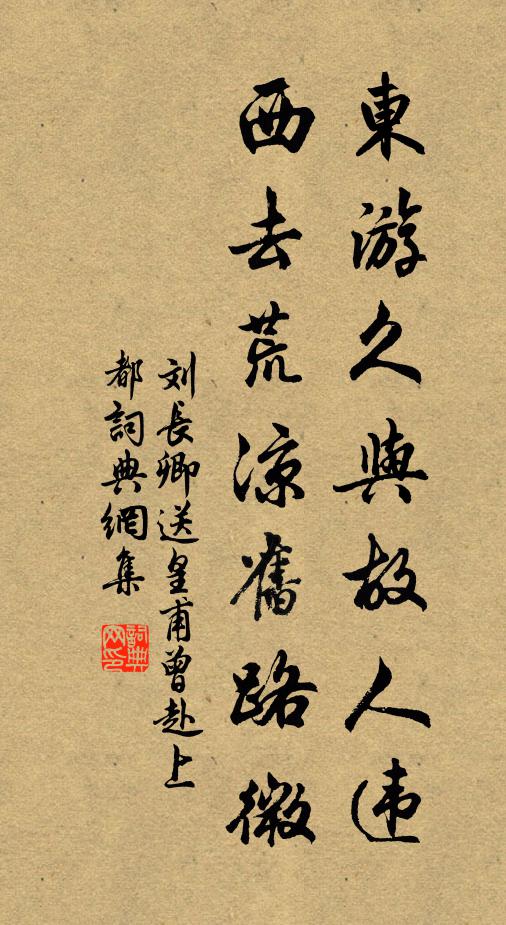 東游久與故人违
西去荒凉舊路微
刘長卿送皇甫曾赴上
都詞典網集
詞典
网印